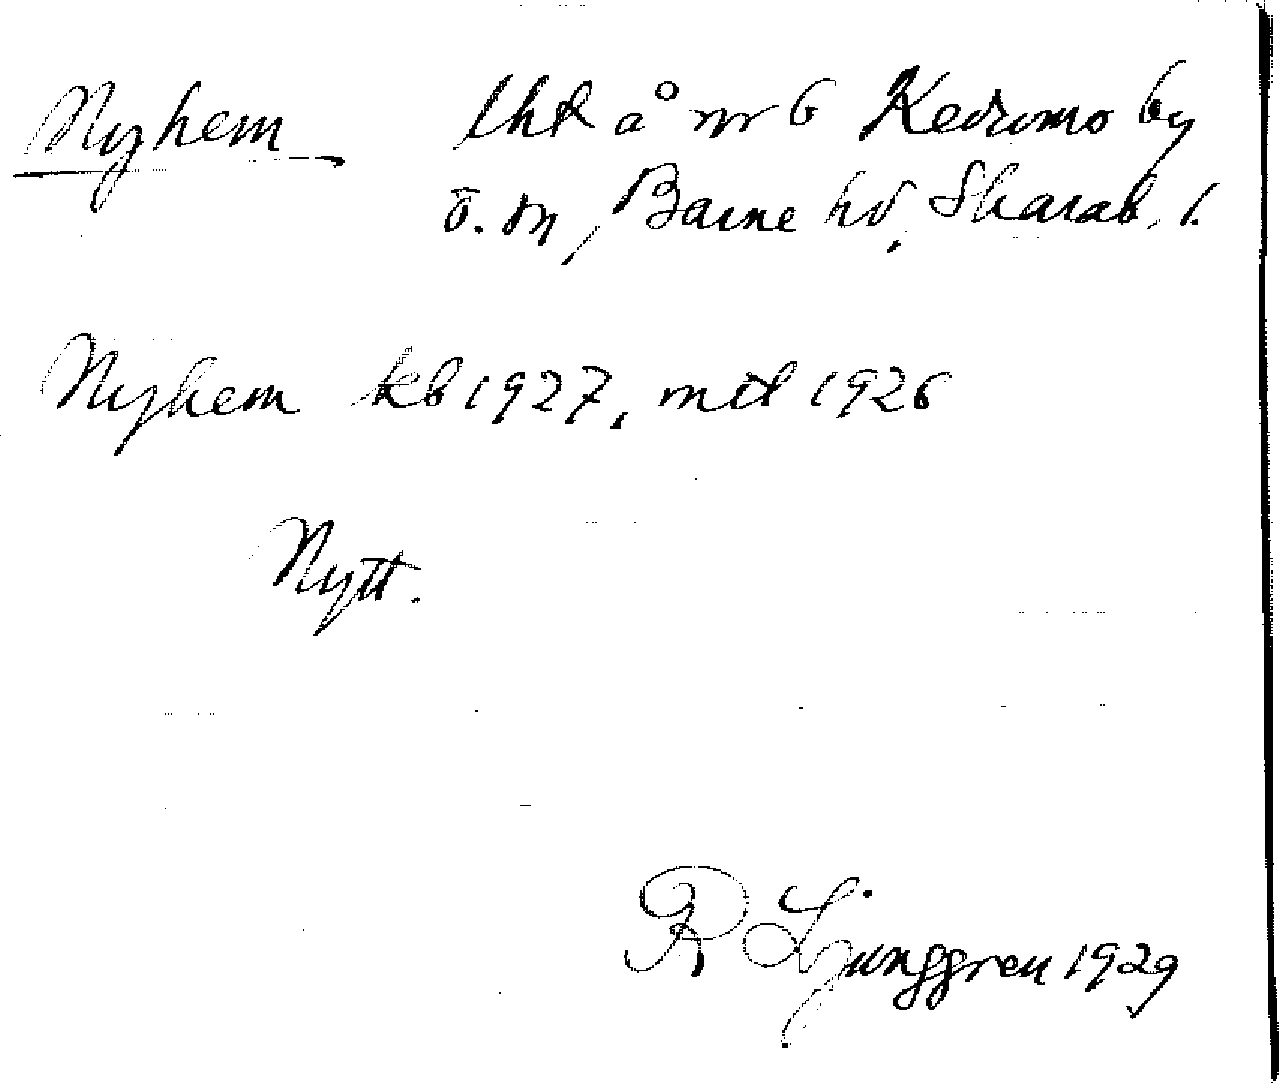 Nyhem lht å nr 6 Kedumo by
ö. m, Barne hd, Skarab. l.
Nyhem kb 1927, mtl 1926
Nytt.
R Ljunggren 1929